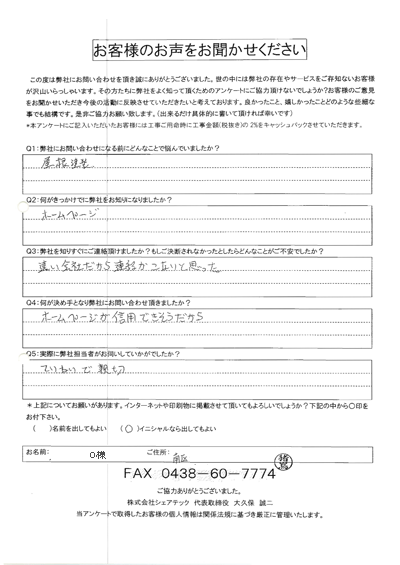 お客様のお声をお聞かせください
この度は弊社にお問い合わせを頂き誠にありがとうございました。世の中には弊社の存在やサービスをご存知ないお客様
が沢山いらっしゃいます。その方たちに弊社をよく知って頂くためのアンケートにご協力頂けないでしょうか?お客様のご意見
をお聞かせいただき今後の活動に反映させていきたいと考えております。良かったこと、嬉しかったことどのような些細な
事でも結構です。是非ご協力お願い致します。(出来るだけ具体的に書いて頂ければ幸いです)
*本アンケートにご記入いただいたお客様には工事ご用命時に工事金額(税抜き)の 2%をキャッシュバックさせていただきます。
Q1:弊社にお問い合わせになる前にどんなことで悩んでいましたか?
屋根塗装
Q2:何がきっかけでに弊社をお知りになりましたか?
ホームページ
Q3:弊社を知りすぐにご連絡頂けましたか?もしご決断されなかったとしたらどんなことがご不安でしたか?
遠い会社だから連絡がこないと思った
Q4:何が決め手となり弊社にお問い合わせ頂きましたか?
ホームページが信用できそうだから
Q5:実際に弊社担当者がお伺いしていかがでしたか?
ていねいで親切
*上記についてお願いがあります。インターネットや印刷物に掲載させて頂いてもよろしいでしょうか?下記の中から〇印を
お付下さい。
( )名前を出してもよい (〇)イニシャルなら出してもよい
お名前: O様 ご住所: 南区
FAX 0438-60-7774
ご協力ありがとうございました。
株式会社シェアテック 代表取締役 大久保 誠二
当アンケートで取得したお客様の個人情報は関係法規に基づき厳正に管理いたします。